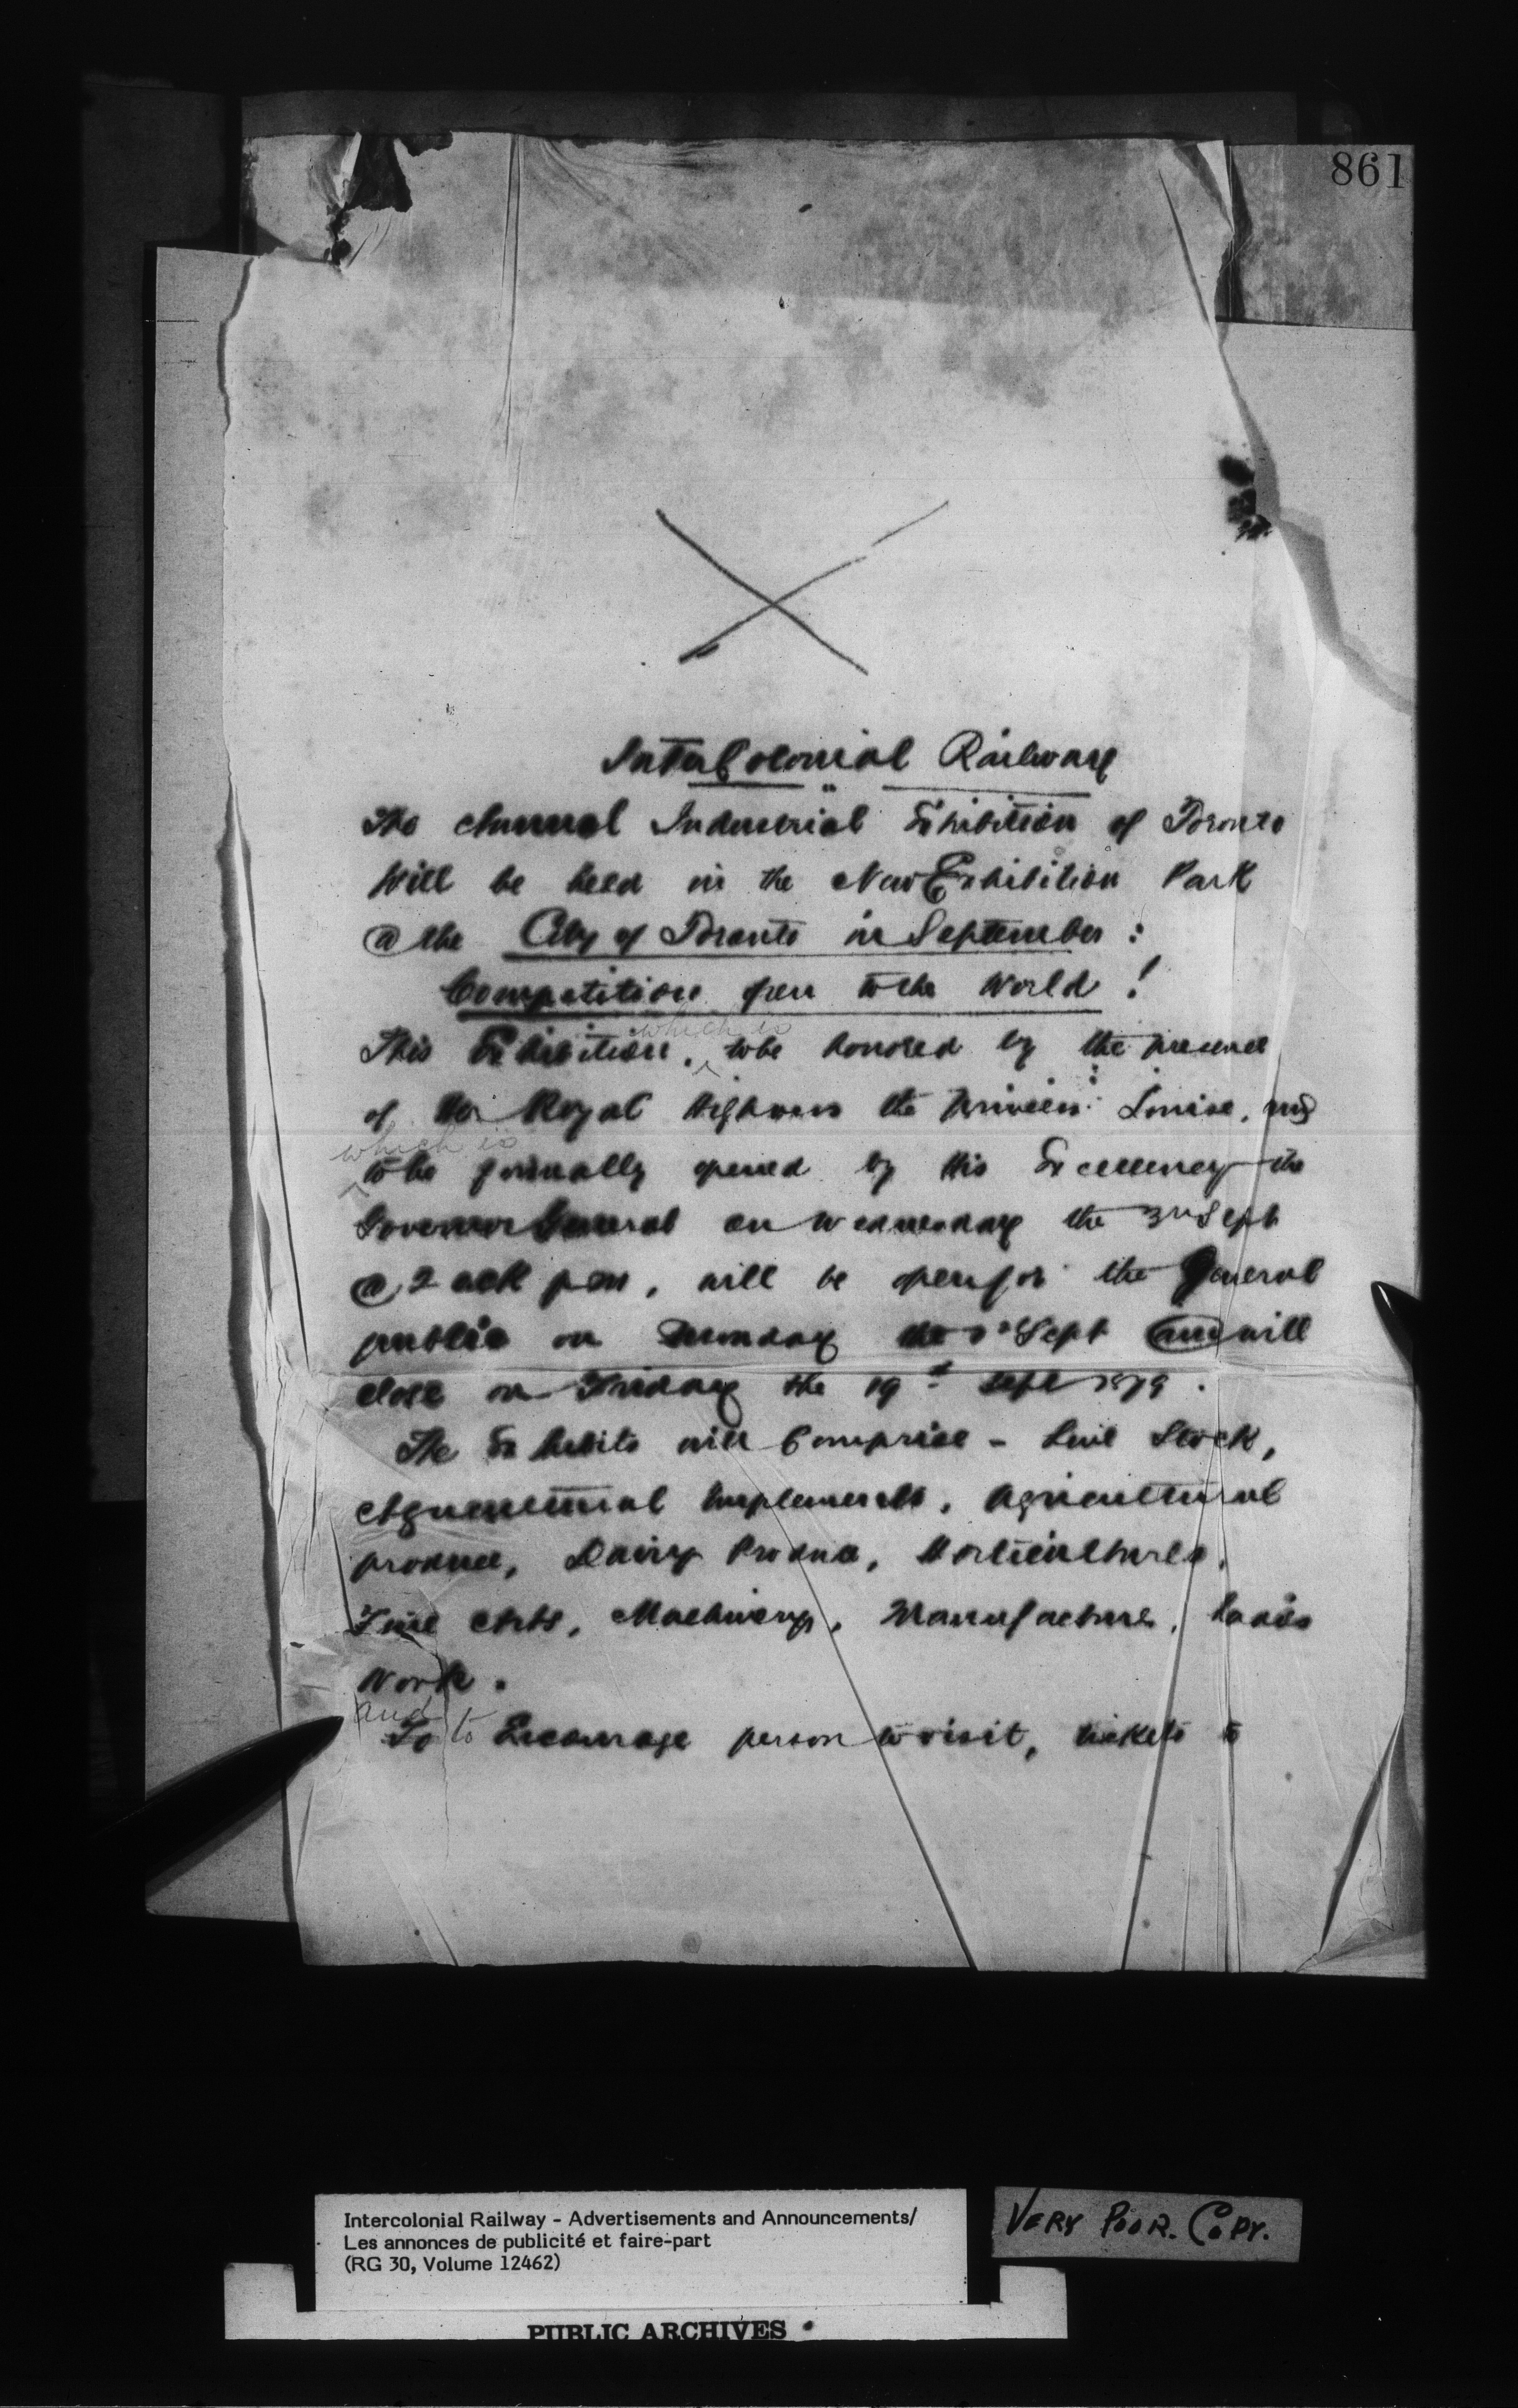 861
InterColonial Railway
The Annual Industrial Exhibition of Toronto
Will be held in the New Exhibition Park
@ the City of Toronto in September :
Competition open to the World !
which is
This Exhibition, to be honored by the presence
of Her Royal Highness the Princess Louise, and
which is
to be formally opened by His Excellency the
Governor General on Wednesday the 3rd Sept
@ 2 oclk pm, will be open for the General
public on the Sept and will
close on Friday the 19th Sept 1879.
The Exhibits will Comprise - Live Stock,
Agricultural Implements, Agricultural
produce, Dairy Produce, Horticultural,
Fine Arts, Machinery, Manufactures, Ladies
Work.
and
To to Encourage person to visit, tickets to
Intercolonial Railway - Advertisements and Announcements/
Les annonces de publicité et faire-part
(RG 30, Volume 12462)
VERY POOR. COPY.
PUBLIC ARCHIVES